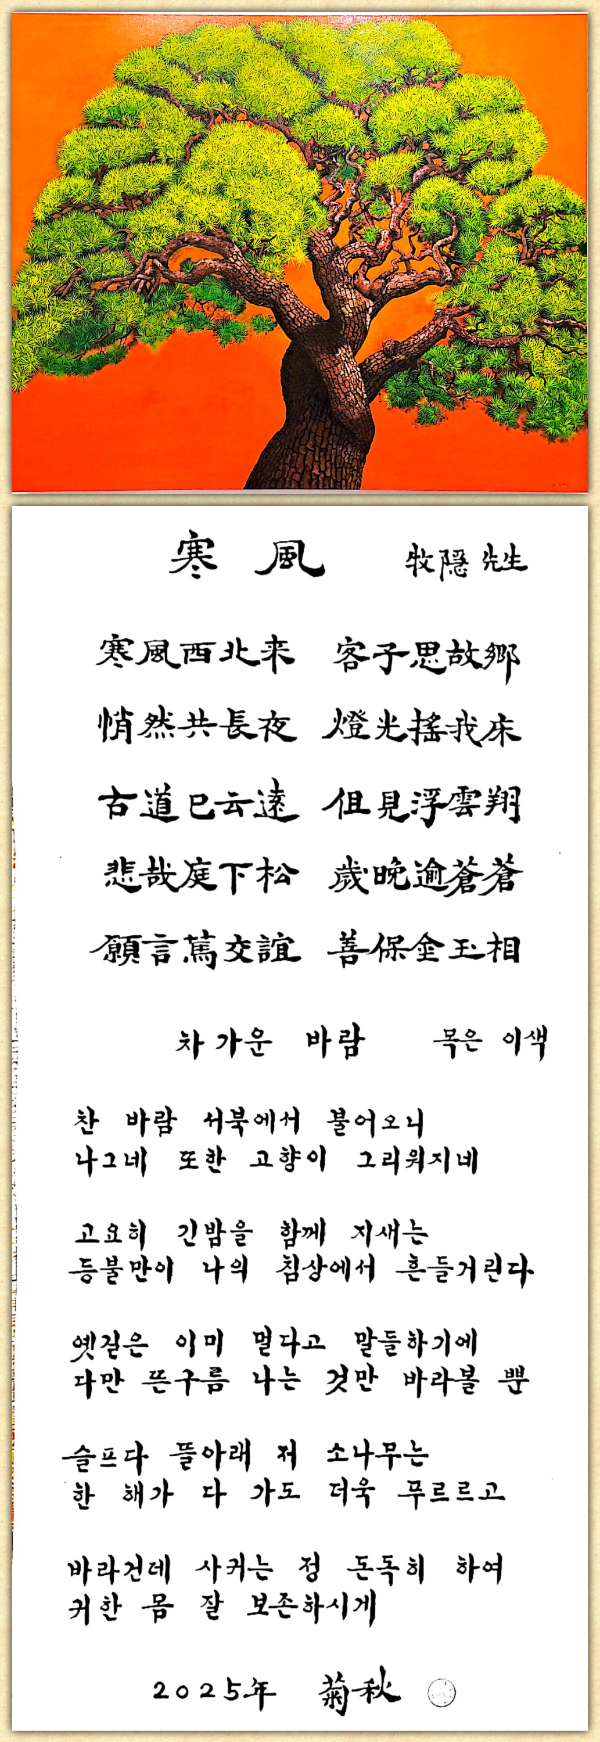 寒風 牧隠先生
寒風西北来 客子思故鄉
悄然共長夜 燈光搖我床
古道已云遠 但見浮雲翔
悲哉庭下松 歲晩逾蒼蒼
願言篤交誼 善保金玉相
차가운 바람 목은 이색
찬 바람 서북에서 불어오니
나그네 또한 고향이 그리워지네
고요히 긴밤을 함께 지새는
등불만이 나의 침상에서 흔들거린다
옛길은 이미 멀다고 말들하기에
다만 뜬구름 나는 것만 바라볼 뿐
슬프다 뜰아래 저 소나무는
한 해가 다 가도 더욱 푸르르고
바라건데 사귀는 정 돈독히 하여
귀한 몸 잘 보존하시게
2025年 菊秋